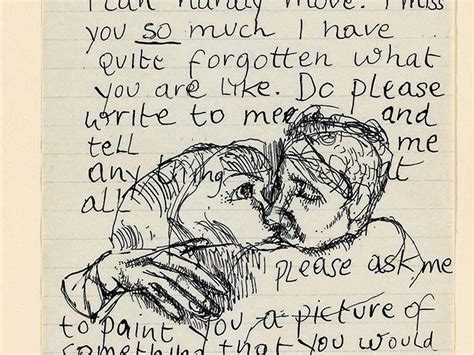 I can hardly move. I miss
you so much I have
quite forgotten what
you are like. Do please
write to me and
tell me
anything at
all
please ask me
to paint you a picture of
something that you would